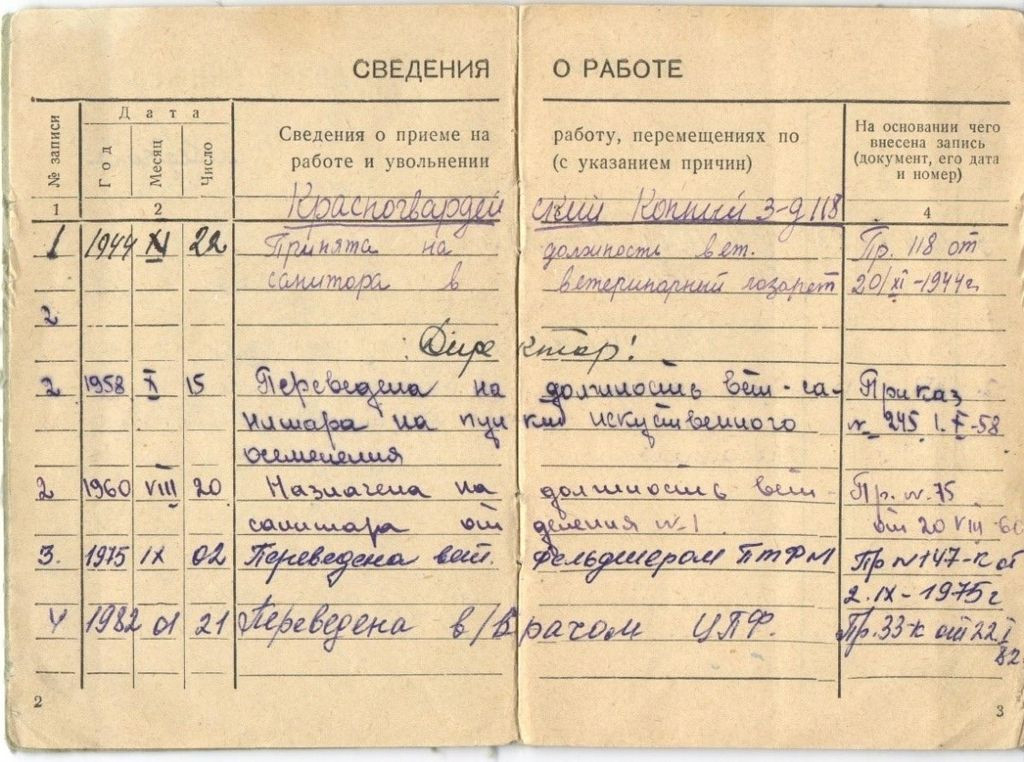 СВЕДЕНИЯ О РАБОТЕ
№ записи
Дата
Год
Месяц
Число
Сведения о приеме на работу, перемещениях по
работе и увольнении (с указанием причин)
На основании чего
внесена запись
(документ, его дата
и номер)
1 2 3 4
Красногвардейский Конний З-д 118
1 1944 XI 22 Принята на должность вет. Пр. 118 от
санитора в ветеринарный лазарет 20/XI-1944г.
2
Директор!
2 1958 X 15 Переведена на должность вет-са- Приказ
нитара на пункт искуственного № 245 1.X-58
осеменения
2 1960 VIII 20 Назначена на должность вет- Пр. №. 75
санитара отделения №1 от 20 VIII-60
3. 1975 IX 02 Переведена вет. фельдшером ПТФМ Пр №147-к от
2.IX-1975г
4 1982 01 21 Переведена в/врачом ЦПФ. Пр.33-к от 22 I
82.
2
3